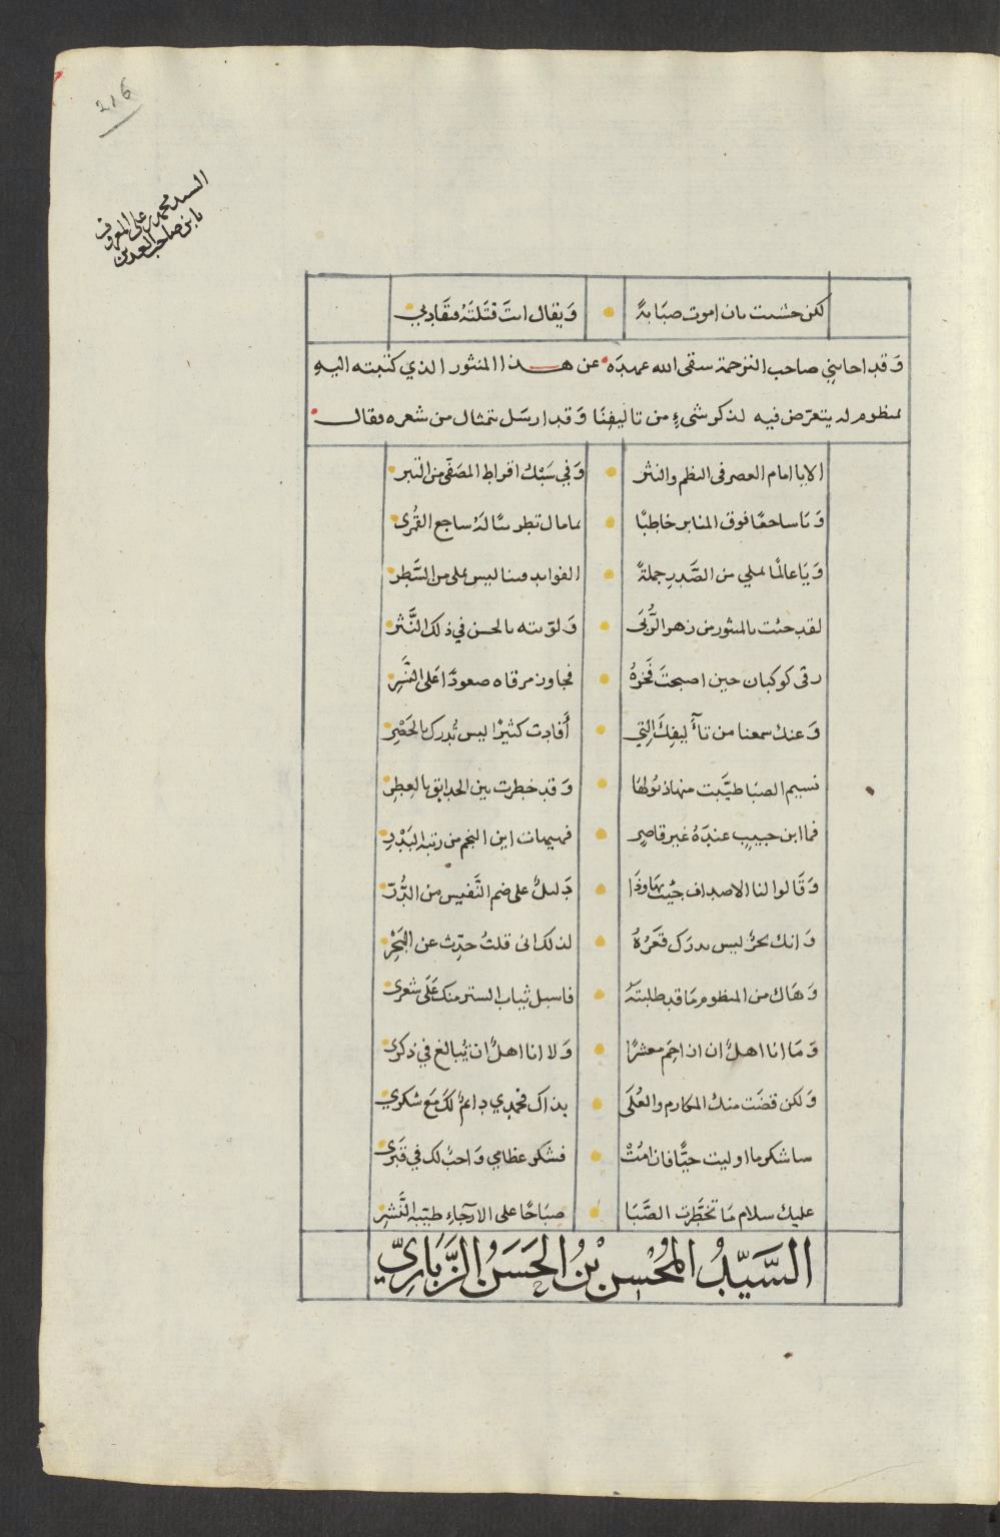 216
السيد محمد بن علي المعروف
بابن صاحب العدين
لكن خشيت بان اموت صبَابةً • وَيقال انتَ قتَلتَهُ فتقَادبي
وَقد اجابني صاحب الترجمة سقى الله عهدَه عن هـذا المنثور الذي كتبته اليه
بمنظوم لم يتعرّض فيه لذكر شيءٍ من تاليفِنَا وَقد ارسَل بتمثال من شعره فقال
الا يا امام العصر في النظم والنثر • وَفي سَبْك اقراط المصَفّى من التبر
وَيَا ساجعًا فوق المنابر خاطبًا • بما مال تطربًا لهُ ساجع القُمرى
وَيَا عالمًا يملي من الصَّدرِ جملةً • الفوايد فينا ليس يملى من السَّطر
لقد جئت بالمنثور من زهر الرُّبَى • وَلوّنته بالحسن في ذلك النَّثر
رقى كوكبان حين اصبحتَ فَخرَهُ • فجاوز مرقاه صعودًا عَلى النَّسْرِ
وَعنك سمعنا من تآليفِكَ الِتي • أَفادت كثيرًا ليس تُدرك بالحَصْرِ
نسيم الصبَا طيَّبت منها ذيُولهَا • وَقد خطرت بين الحدايق بالعِطرِ
فما ابن حبيبٍ عندَهُ غير قاصرٍ • فهيهات اين النجم من رتبة البَدْرِ
وَقَالوا لنا الاصداف جئت بهَا وَذَا • دَليلٌ على ضم النَّفيس من الدُّرّ
وَانك بحرٌ ليس يدرَك قعَرُهُ • لذلك انى قلتُ حدِّث عن البَحْرِ
وَهَاك من المنظوم مَا قد طلبتَهُ • فاسبل ثياب الستر منك عَلَى شعرى
وَمَا انا اهلٌ ان ان اجِم معشرًا • وَلا انا اهلٌ ان يُبالغ في ذكرى
وَلكن قضَت منك المكارم والعُلَى • بذاك فحَمدي دايمٌ لكَ مَع شكري
ساشكر ما اوليت حيًّا فان امُتْ • فشكر عظامي وَاجبٌ لك في قَبَرى
عليك سلام مَا تخطَّرت الصَّبَا • صبَاحًا على الارجاءِ طيّبة النَّشرِ
السَّيِّدُ المُحْسِن بْنُ الحَسَنِ الزَّبَارِيّ